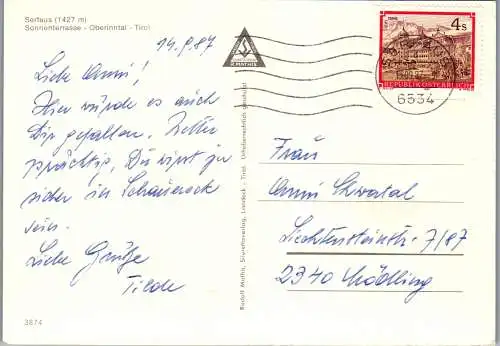 Serfaus (1427 m)
Sonnenterrasse - Oberinntal - Tirol
14.9.87
Liebe Anni!
Hier würde es auch
Dir gefallen. Wetter
prächtig, Du wirst ja
sicher in
sein.
Liebe Grüße
Tilde
3874
Rudolf Mathis, Silvrettaverlag, Landeck - Tirol. Urheberrechtlich geschützt
R. MATHIS
4s
REPUBLIK ÖSTERREICH
6534
Frau
Anni
Liechtensteinstr. 7/87
2340 Mödling